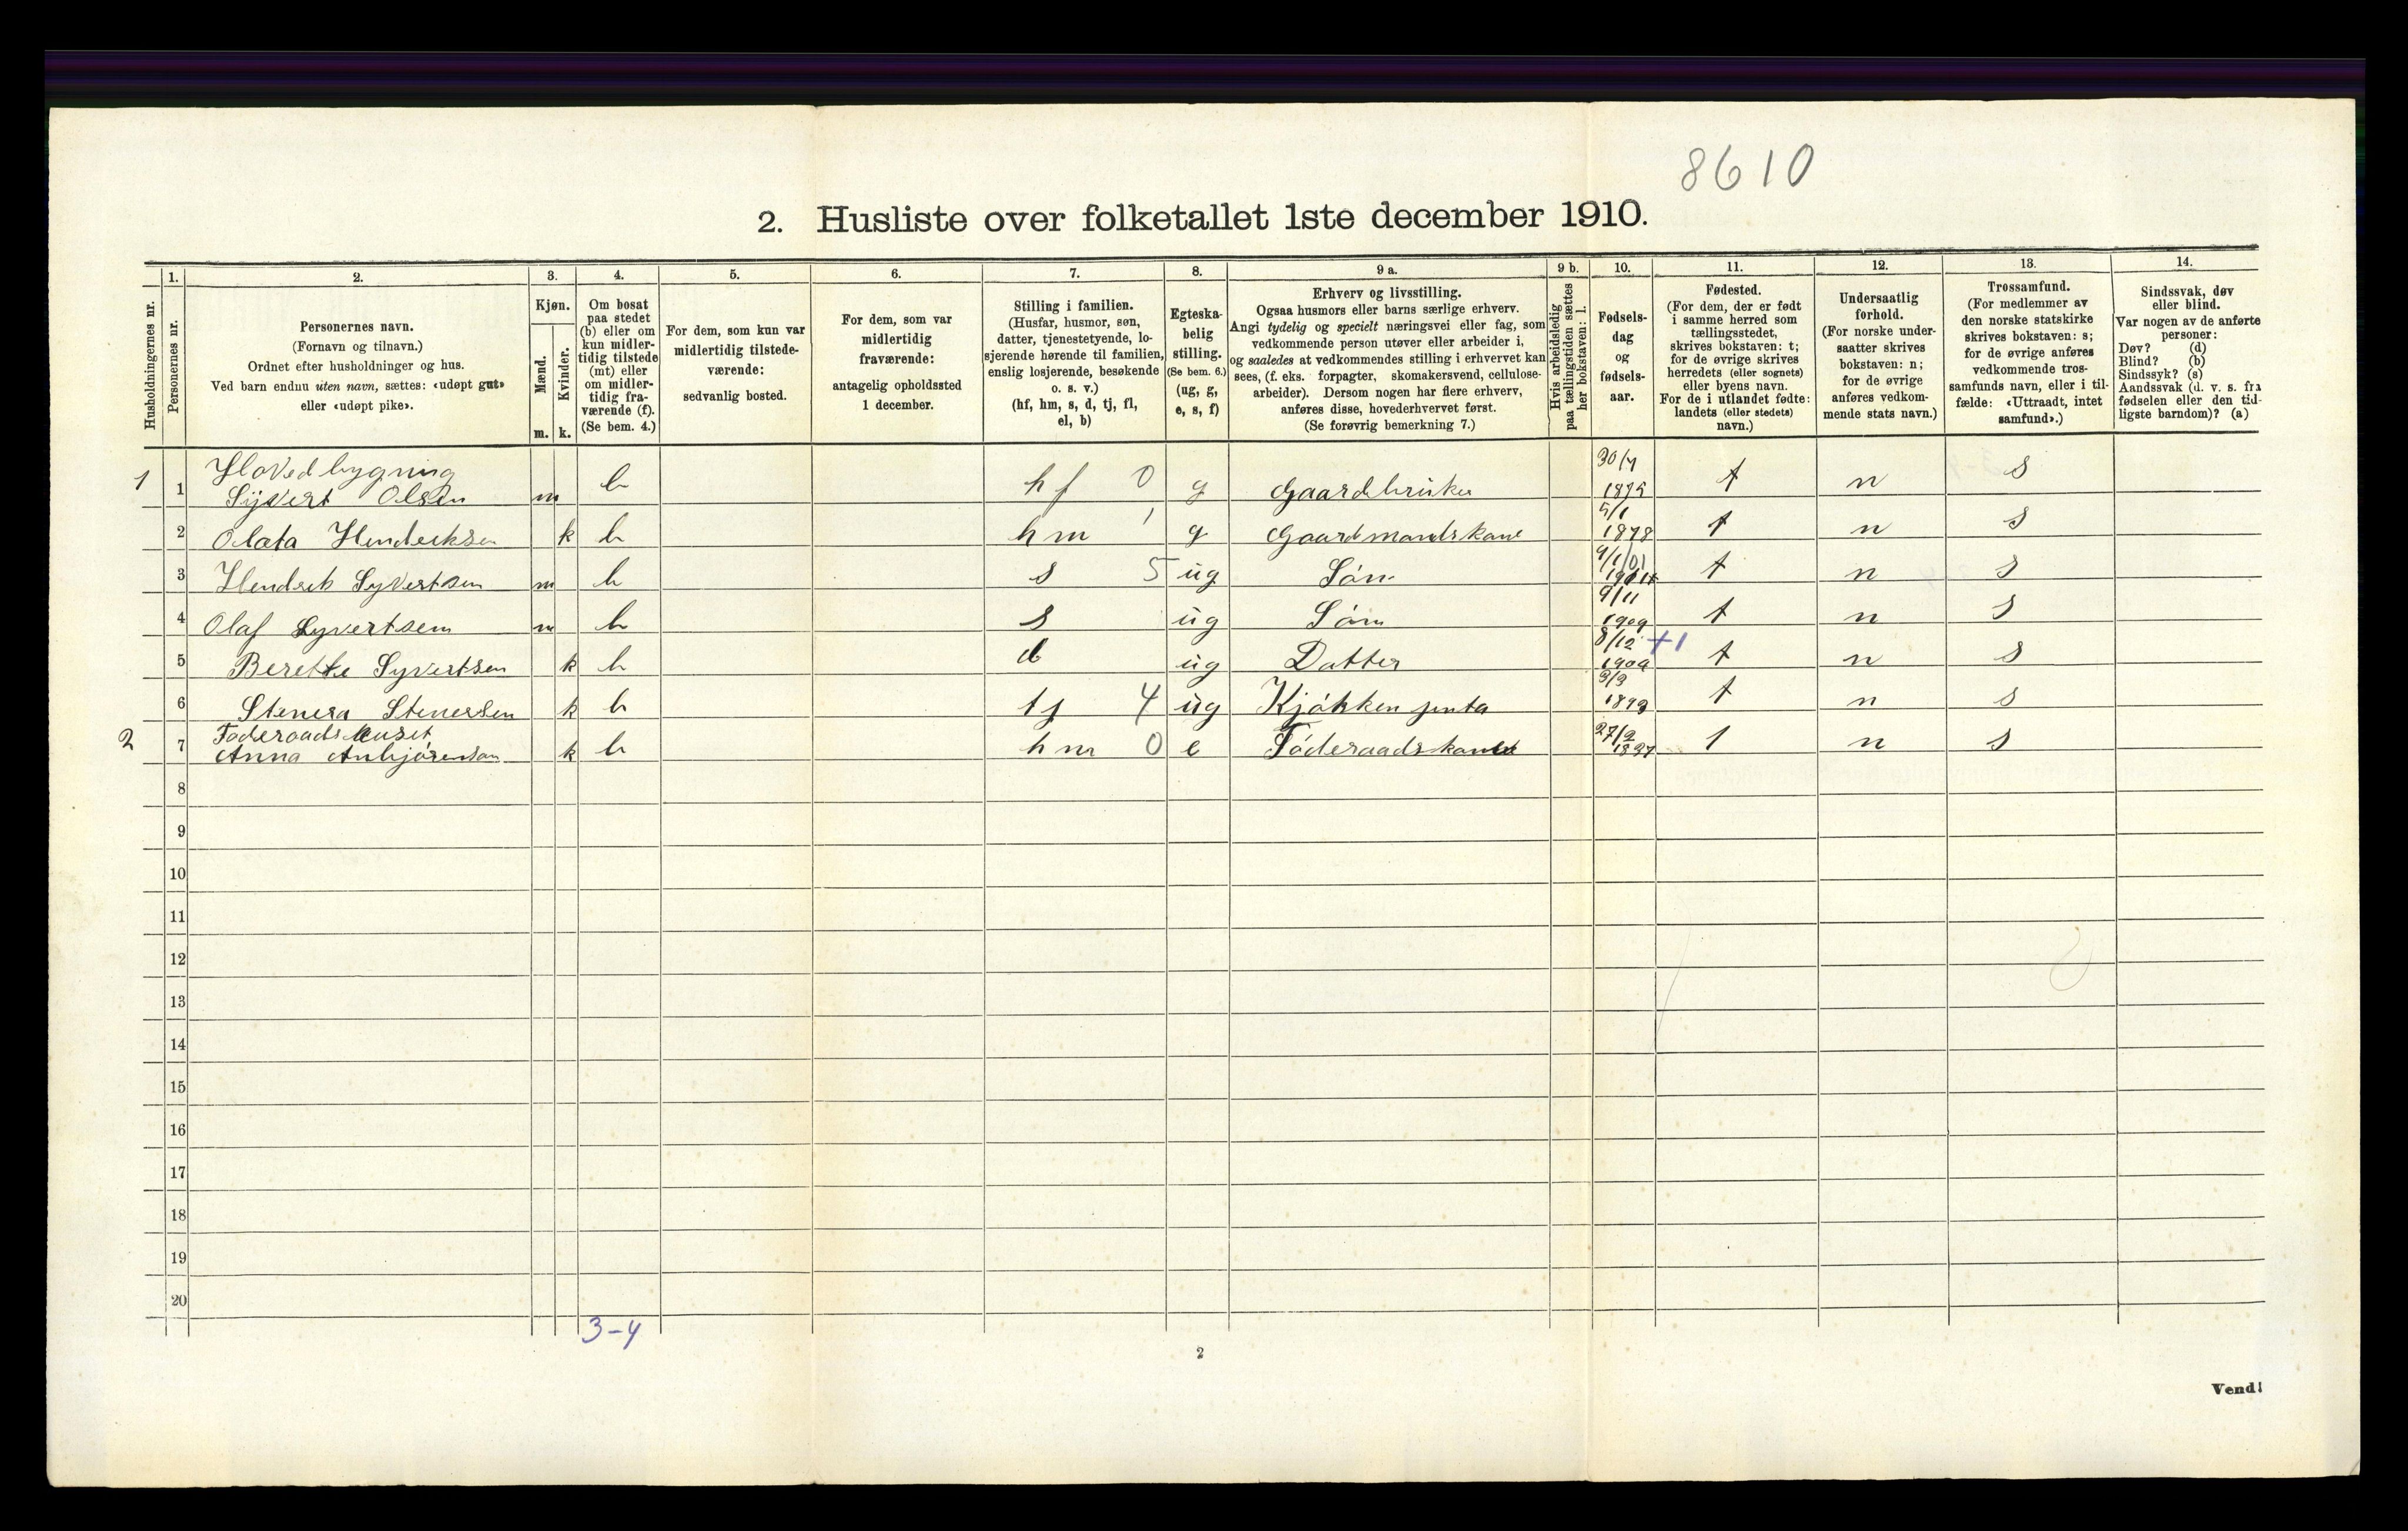 8610
2. Husliste over folketallet 1ste december 1910.
Husholdningernes nr.
1.
Personernes nr.
2.
Personernes navn.
(Fornavn og tilnavn.)
Ordnet efter husholdninger og hus.
Ved barn endnu uten navn, sættes: «udøpt gut»
eller «udøpt pike».
3.
Kjøn.
Mænd.
Kvinder.
m. k.
4.
Om bosat
paa stedet
(b) eller om
kun midler-
tidig tilstede
(mt) eller
om midler-
tidig fra-
værende (f).
(Se bem. 4.)
5.
For dem, som kun var
midlertidig tilstede-
værende:
sedvanlig bosted.
6.
For dem, som var
midlertidig
fraværende:
antagelig opholdssted
1 december.
7.
Stilling i familien.
(Husfar, husmor, søn,
datter, tjenestetyende, lo-
sjerende hørende til familien,
enslig losjerende, besøkende
o. s. v.)
(hf, hm, s, d, tj, fl,
el, b)
8.
Egteska-
belig
stilling.
(Se bem. 6.)
(ug, g,
e, s, f)
9 a.
Erhverv og livsstilling.
Ogsaa husmors eller barns særlige erhverv.
Angi tydelig og specielt næringsvei eller fag, som
vedkommende person utøver eller arbeider i,
og saaledes at vedkommendes stilling i erhvervet kan
sees, (f. eks. forpagter, skomakersvend, cellulose-
arbeider). Dersom nogen har flere erhverv,
anføres disse, hovederhvervet først.
(Se forøvrig bemerkning 7.)
9 b.
Hvis arbeidsledig
paa tællingstiden sættes
her bokstaven: l.
10.
Fødsels-
dag
og
fødsels-
aar.
11.
Fødested.
(For dem, der er født
i samme herred som
tællingsstedet,
skrives bokstaven: t;
for de øvrige skrives
herredets (eller sognets)
eller byens navn.
For de i utlandet fødte:
landets (eller stedets)
navn.)
12.
Undersaatlig
forhold.
(For norske under-
saatter skrives
bokstaven: n;
for de øvrige
anføres vedkom-
mende stats navn.)
13.
Trossamfund.
(For medlemmer av
den norske statskirke
skrives bokstaven: s;
for de øvrige anføres
vedkommende tros-
samfunds navn, eller i til-
fælde: «Uttraadt, intet
samfund».)
14.
Sindssvak, døv
eller blind.
Var nogen av de anførte
personer:
Døv? (d)
Blind? (b)
Sindssyk? (s)
Aandssvak (d. v. s. fra
fødselen eller den tid-
ligste barndom)? (a)
Hovedbygning
1 1 Syvert Olsen m b hf 0 g Gaardbruker 30/7 1875 t n s
2 Olata Hendriksen k b hm 1 g Gaardmandskone 5/1 1878 t n s
3 Hendrik Syvertsen m b s 5 ug Sön 9/1/01 t n s
4 Olaf Syvertsen m b s ug Sön 9/11 1909 t n s
5 Berette Syvertsen k b d ug Datter 8/12 +1 t n s
6 Stenera Stenersen k b tj 4 ug Kjökken jenta 3/3 1893 t n s
Föderaadshuset
2 7 Anna k b hm 0 e Föderaadskone 27/2 t n s
8
9
10
11
12
13
14
15
16
17
18
19
20
3-4
2
Vend!